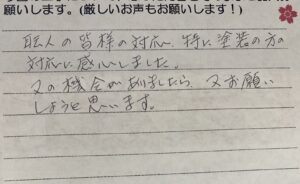 願いします。(厳しいお声もお願いします!)
職人の皆様の対応、特に塗装の方の
対応に感心しました。
又の機会がありましたら、又お願い
しようと思います。